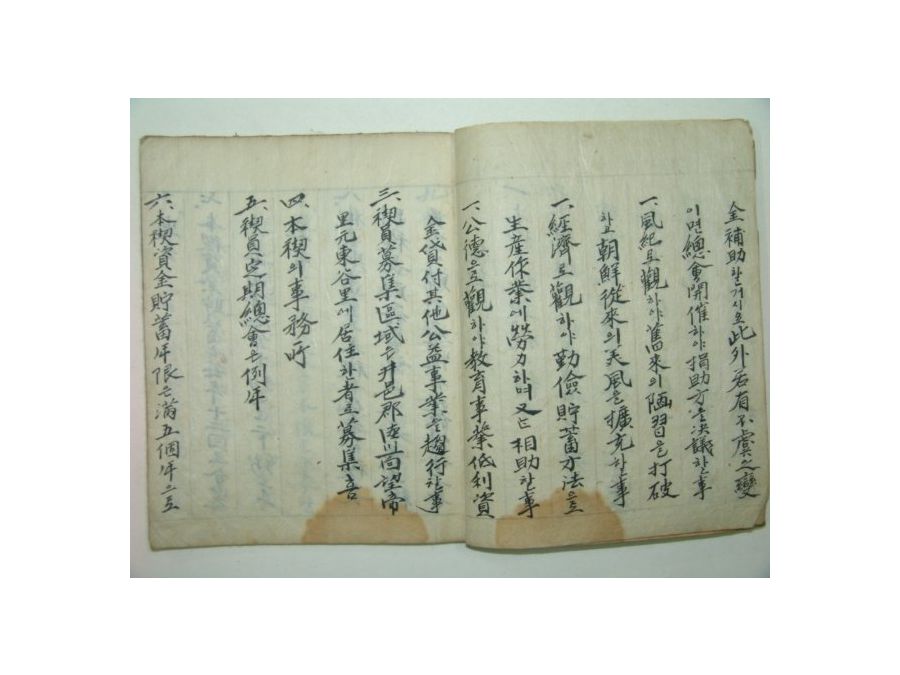 金補助할거시오此外若有不虞之變
이면總會開催하야捐助方을決議할事
一、風紀로觀하야舊來의陋習을打破
하고朝鮮從來의美風을擴充할事
一、經濟로觀하야勤儉貯蓄方法으로
生産作業에勞力하며又는相助할事
一、公德으로觀하야敎育事業低利資
金貸付其他公益事業을趨行할事
三、禊員募集區域은井邑郡 面望帝
里元東谷里에居住한者로募集喜
四、本禊의事務所
五、禊員定期總會은例年
六、本禊資金貯蓄年限은滿五個年으로